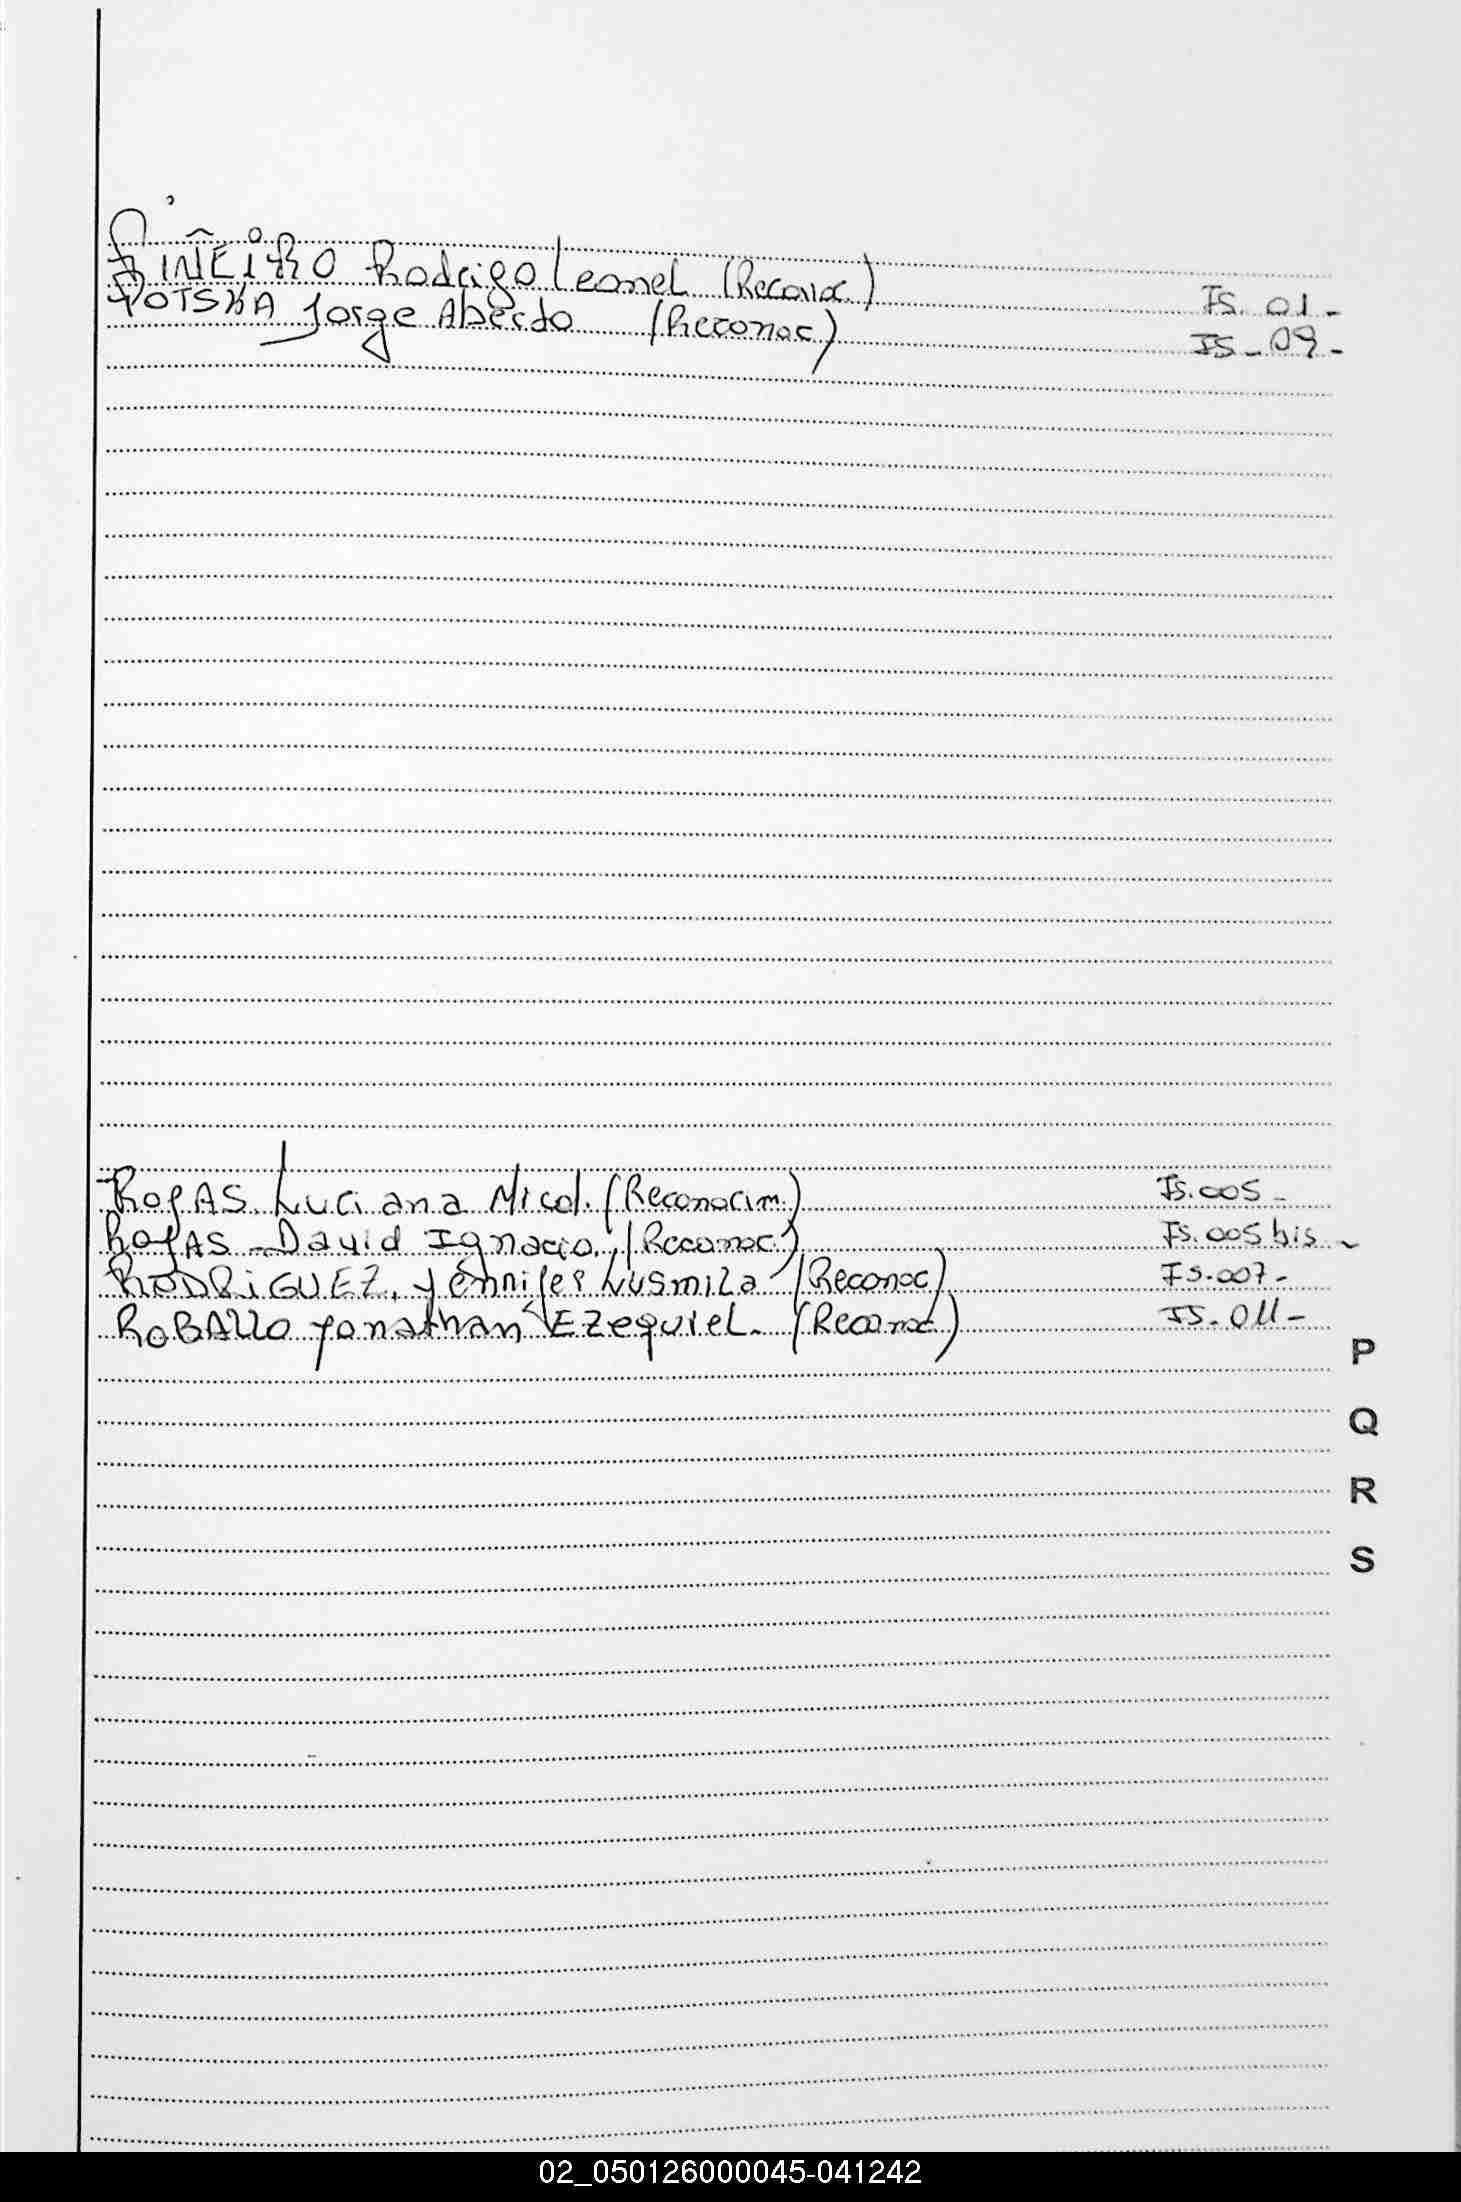 PIÑEIRO Rodrigo Leonel (Reconoc.) Fs. 01-
POTSKA Jorge Abecdo (Reconoc) Fs - 09-
RojAS. Luciana Micol. (Reconocim.) Fs. 005 -
RojAS - David Ignacio. (Reconoc.) Fs. 005 bis -
RODRiGUEZ, Yénnifer Lusmila (Reconoc) Fs. 007-
RoBAllo Yonathan Ezequiel. (Reconoc) Fs. 011-
P
Q
R
S
02_050126000045-041242